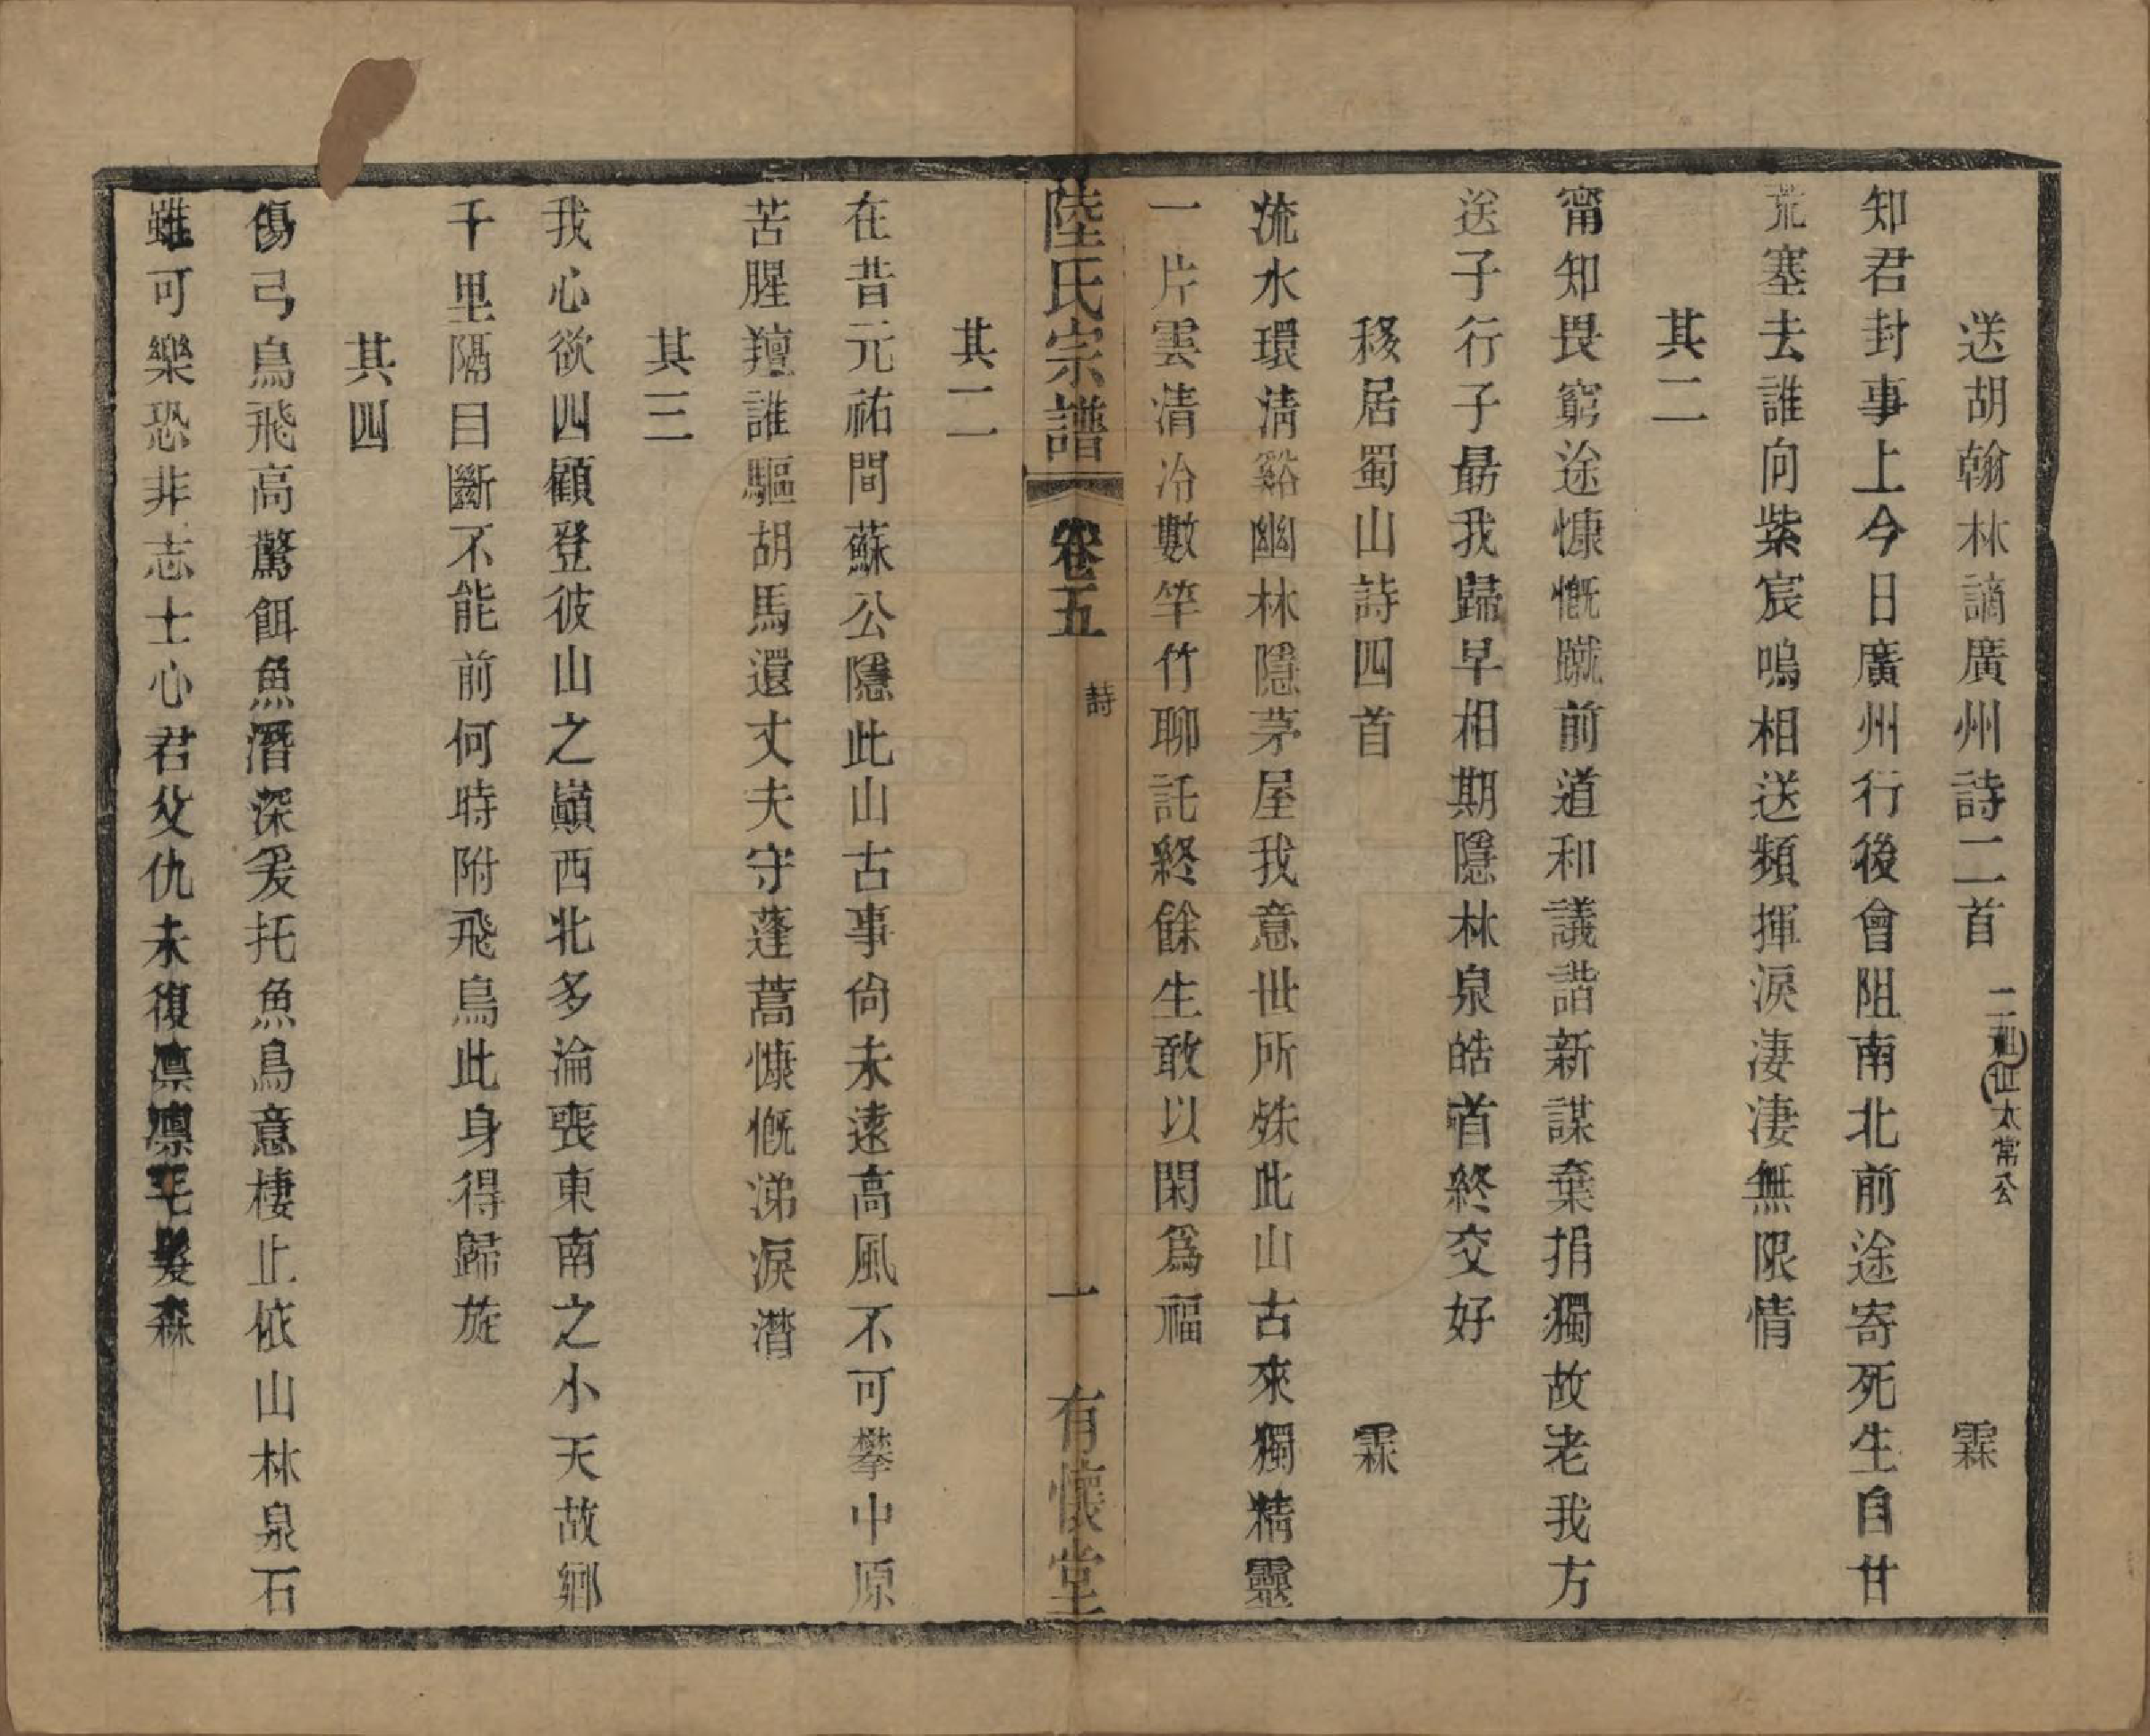 送胡翰林謫廣州詩二首 二十一世太常公 霖
知君封事上今日廣州行後會阻南北前途寄死生自甘
荒塞去誰向紫宸鳴相送頻揮淚淒淒無限情
其二
甯知畏窮途慷慨蹴前道和議諧新謀棄捐獨故老我方
送子行子勗我歸早相期隱林泉皓首終交好
移居蜀山詩四首 霖
流水環清谿幽林隱茅屋我意世所殊此山古來獨精靈
一片雲清冷數竿竹聊託終餘生敢以閑爲福
陸氏宗譜 卷五 詩 一 有懷堂
其二
在昔元祐間蘇公隱此山古事尙未遠高風不可攀中原
苦腥羶誰驅胡馬還丈夫守蓬蒿慷慨涕淚潸
其三
我心欲四顧登彼山之巓西北多淪喪東南之小天故鄉
千里隔目斷不能前何時附飛鳥此身得歸旋
其四
傷弓鳥飛高驚餌魚潛深爰托魚鳥意棲止依山林泉石
雖可樂恐非志士心君父仇未復凛凛毛髮森